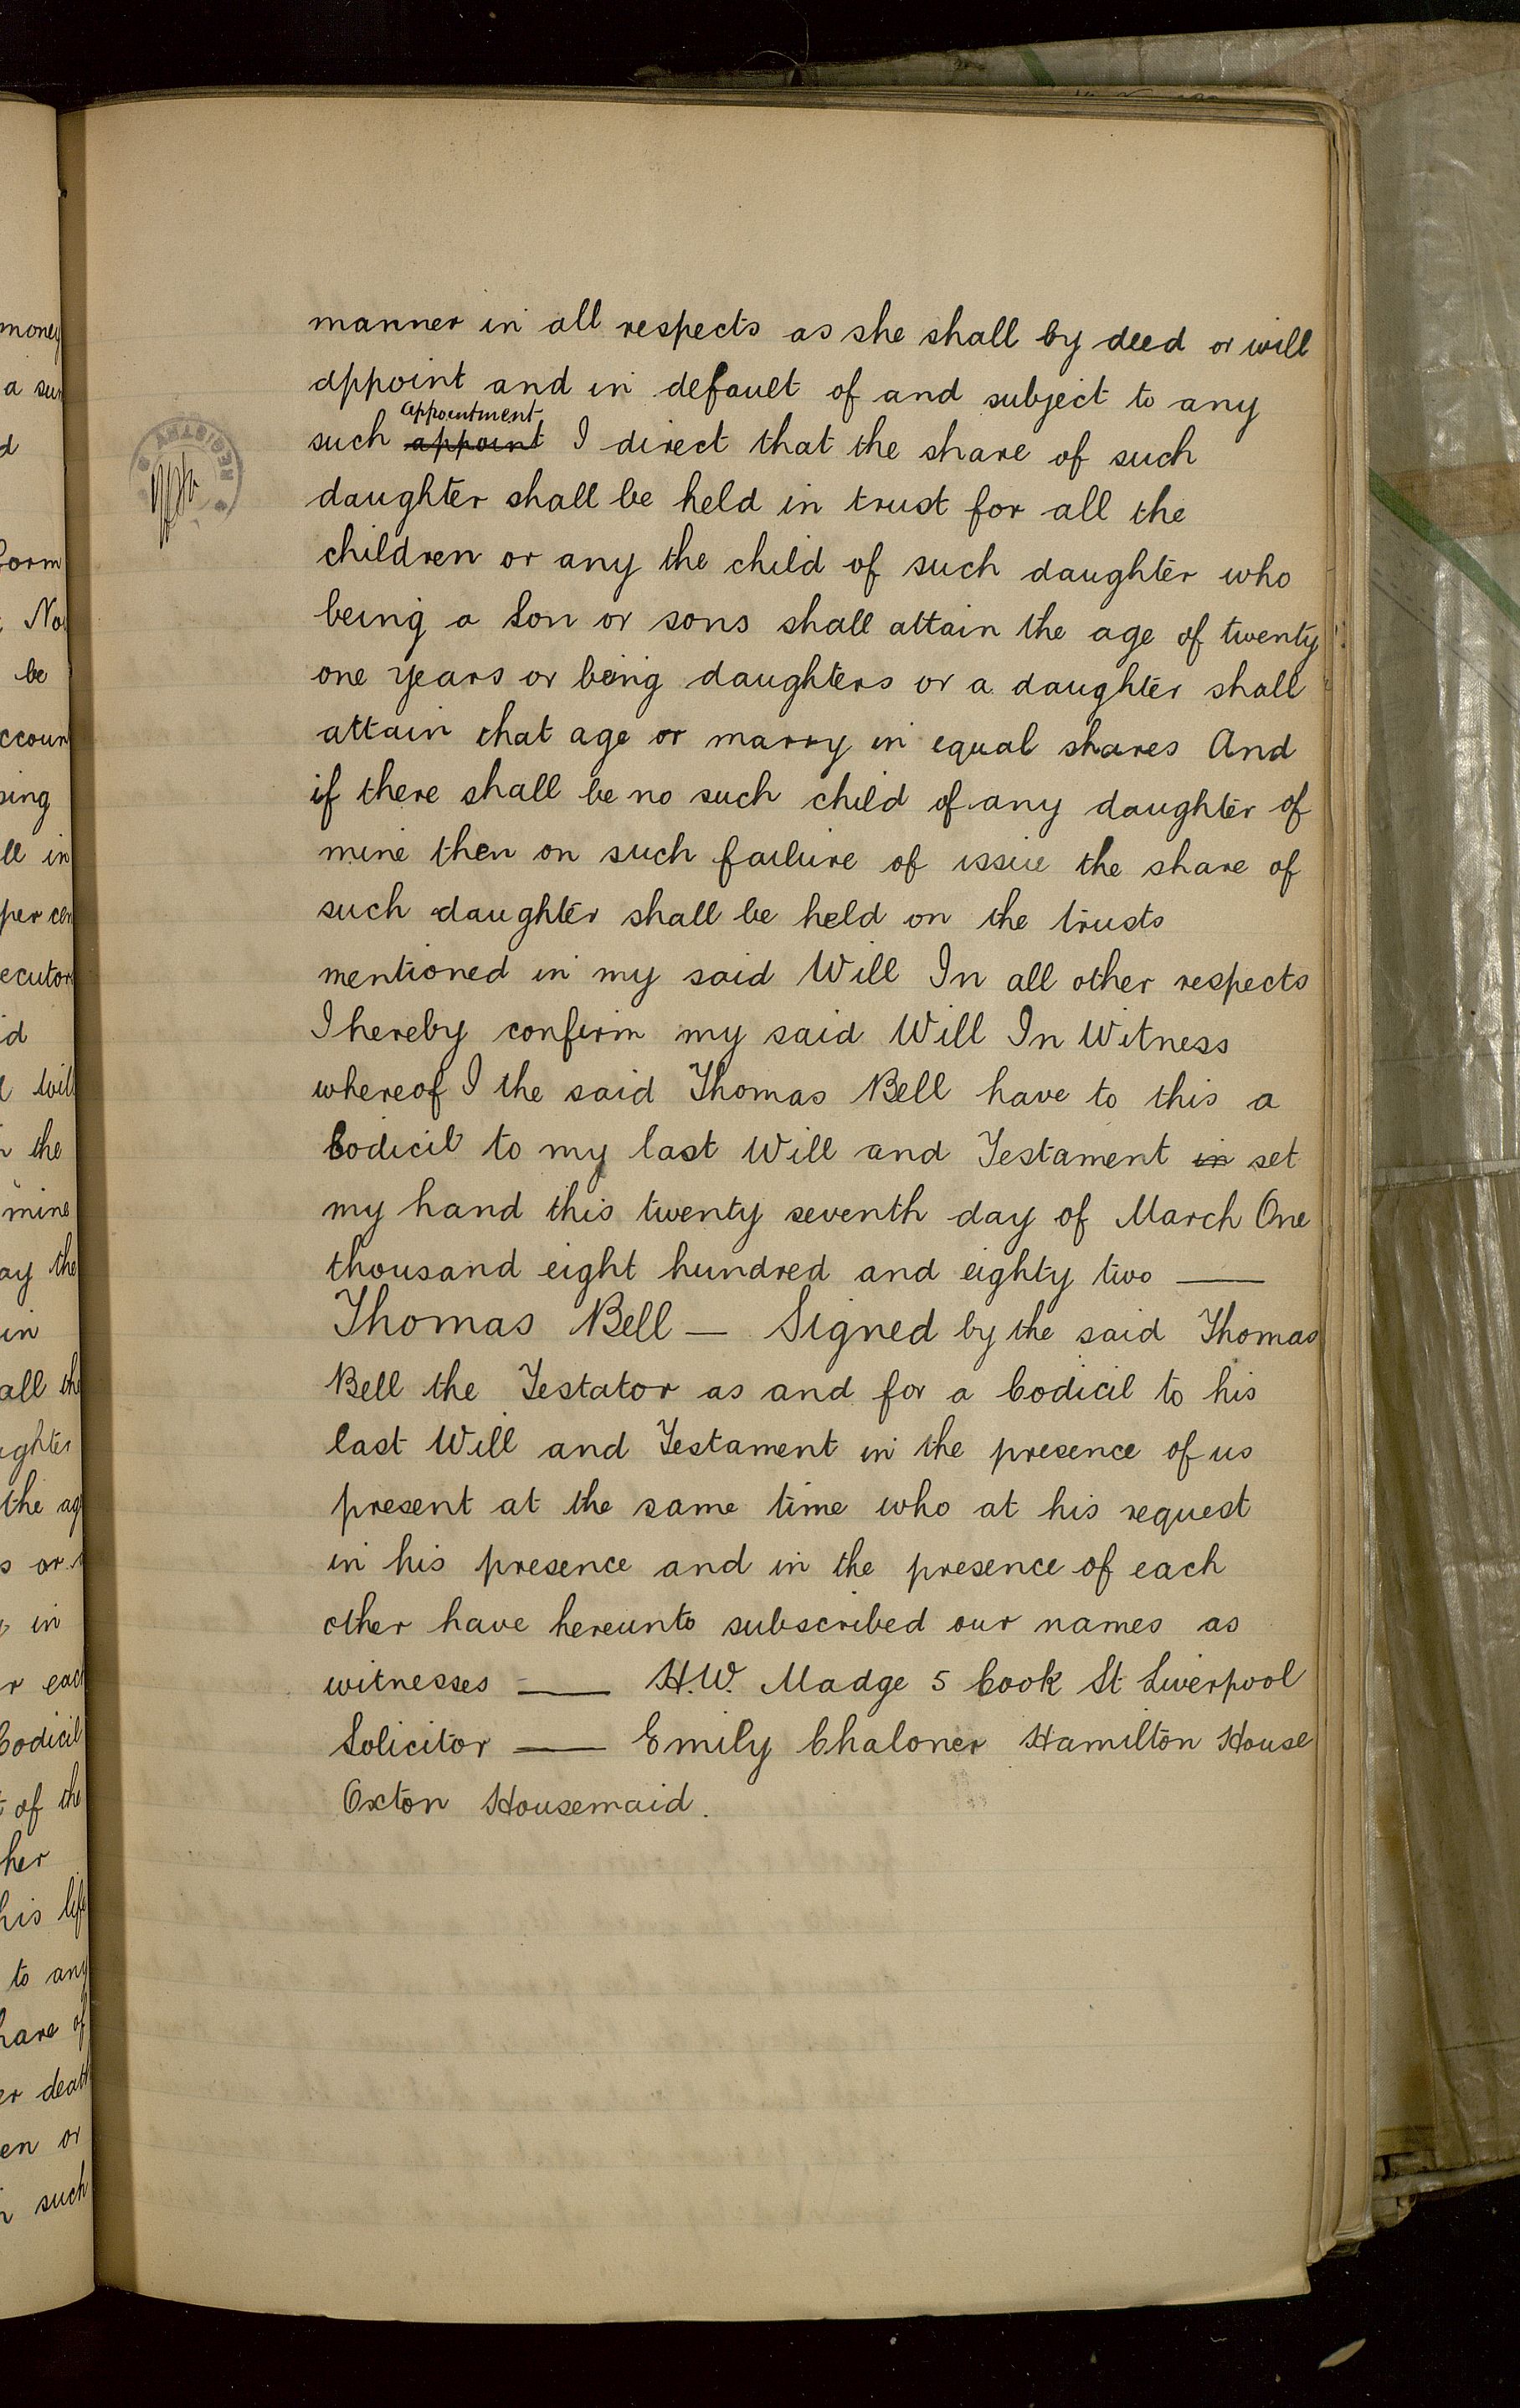 manner in all respects as she shall by deed or will
appoint and in default of and subject to any
appointment
such appoint I direct that the share of such
daughter shall be held in trust for all the
children or any the child of such daughter who
being a Son or sons shall attain the age of twenty
one years or being daughters or a daughter shall
attain that age or marry in equal shares And
if there shall be no such child of any daughter of
mine then on such failure of issue the share of
such daughter shall be held on the trusts
mentioned in my said Will In all other respects
I hereby confirm my said Will In Witness
whereof I the said Thomas Bell have to this a
Codicil to my last Will and Testament in set
my hand this twenty seventh day of March One
thousand eight hundred and eighty two —
Thomas Bell — Signed by the said Thomas
Bell the Testator as and for a Codicil to his
last Will and Testament in the presence of us
present at the same time who at his request
in his presence and in the presence of each
other have hereunto subscribed our names as
witnesses — H.W. Madge 5 Cook St Liverpool
Solicitor — Emily Chaloner Hamilton House
Oxton Housemaid.
REGISTRY
money
a
be
in
the
mine
the
in
all
the
or
in
Codicil
of the
her
his
to any
of
or
such